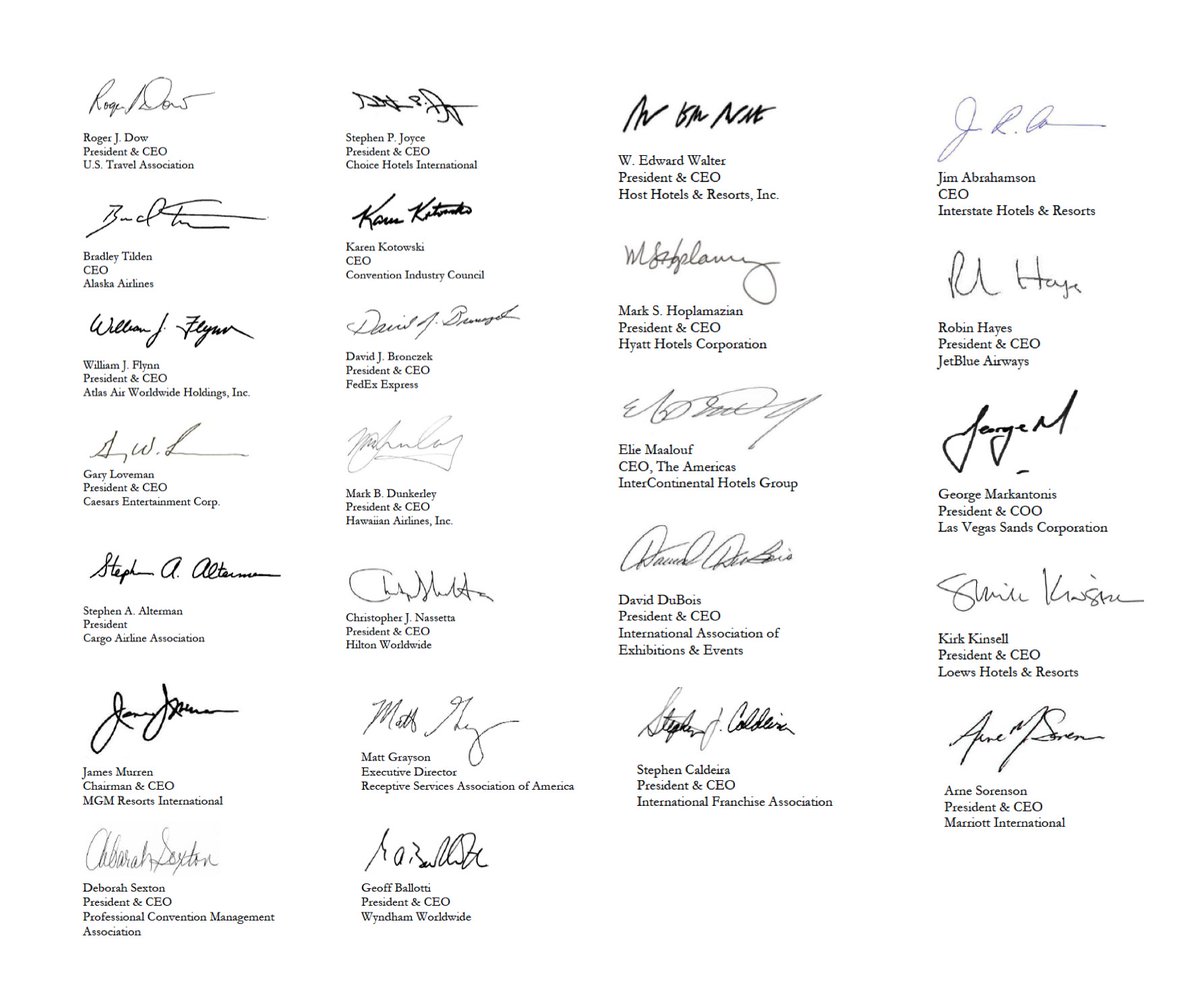 Roger J. Dow
President & CEO
U.S. Travel Association
Bradley Tilden
CEO
Alaska Airlines
William J. Flynn
William J. Flynn
President & CEO
Atlas Air Worldwide Holdings, Inc.
Gary Loveman
President & CEO
Caesars Entertainment Corp.
Stephen A. Alterman
Stephen A. Alterman
President
Cargo Airline Association
James Murren
Chairman & CEO
MGM Resorts International
Deborah Sexton
President & CEO
Professional Convention Management
Association
Stephen P. Joyce
President & CEO
Choice Hotels International
Karen Kotowski
Karen Kotowski
CEO
Convention Industry Council
David J. Bronczek
David J. Bronczek
President & CEO
FedEx Express
Mark B. Dunkerley
President & CEO
Hawaiian Airlines, Inc.
Christopher J. Nassetta
President & CEO
Hilton Worldwide
Matt Grayson
Executive Director
Receptive Services Association of America
Geoff Ballotti
President & CEO
Wyndham Worldwide
W. Edward Walter
President & CEO
Host Hotels & Resorts, Inc.
Mark S. Hoplamazian
President & CEO
Hyatt Hotels Corporation
Elie Maalouf
CEO, The Americas
InterContinental Hotels Group
David DuBois
David DuBois
President & CEO
International Association of
Exhibitions & Events
Stephen J. Caldeira
Stephen Caldeira
President & CEO
International Franchise Association
Jim Abrahamson
CEO
Interstate Hotels & Resorts
Robin Hayes
President & CEO
JetBlue Airways
George M
George Markantonis
President & COO
Las Vegas Sands Corporation
Kirk Kinsell
President & CEO
Loews Hotels & Resorts
Arne M Sorenson
Arne Sorenson
President & CEO
Marriott International